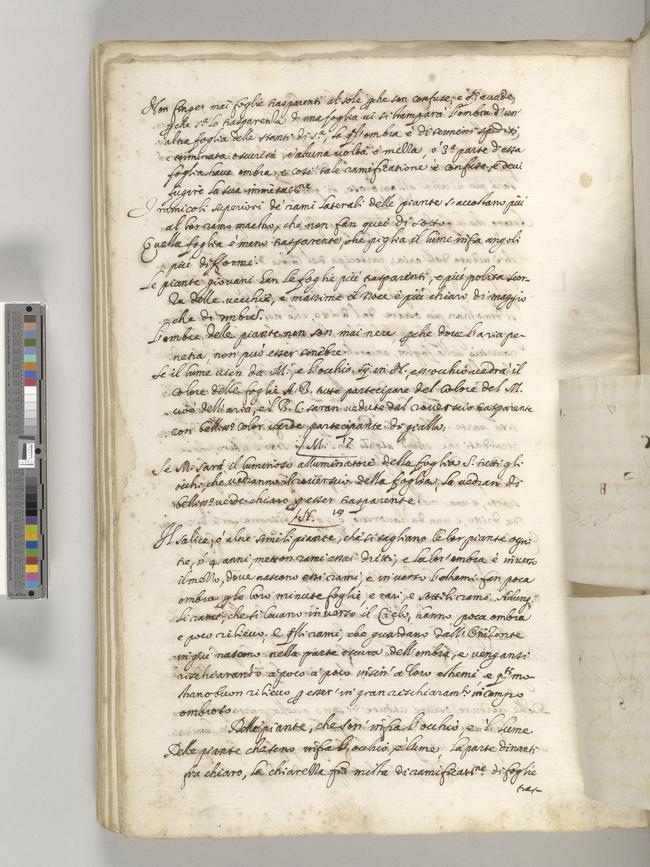 Non finger mai foglie trasparenti al sole, pche son confuse, e accade,
pche la trasparenza d'una foglia vi si stamparà l'ombra d'un'
altra foglia delle stanti di la qll'ombra è di termini spediti,
e terminata oscurità, e alcuna volta è mella, ò 3.ª parte d'essa
foglia have ombra, e così tale ramificatione è confusa, e devi
fugire la sua
I ramicoli superiori de' rami laterali delle piante s'accostano più
al lor ramo maestro, che non fan quei di sotto.
Quella foglia è meno trasparente, che piglia il lume infra angoli
più difformi.
Le piante giovani han le foglie più trasparenti, e più polita scor-
za delle vecchie, e massime il noce è più chiaro di maggio
che di
L'ombre delle piante non son mai nere pche dove l'aria pe-
netra, non può esser tenebre.
Se il lume vien da M. e l'occhio in N. esso occhio vedrà il
colore delle foglie A. B. tutte partecipare del colore del M.
cioè dell'aria, e'l B. C. saran vedute dal rovescio trasparente
con belliss.º color verde partecipante di giallo.
M. 17
Se M. sarà il luminoso alluminatore della foglia S. tutti gli
occhi, che vedranno il rovescio della foglia, la vedran di
belliss.º verde chiaro p esser trasparente.
N. 19
Il salice, e altre simili piante, che si tagliano le lor piante ogni
tre, ò 4. anni metton rami assai dritti, e la lor ombra è inverso
il mezzo, dove nascono essi rami, e inverso l'estremi fan poca
ombra p le loro minute foglie e rari, e sottili rami. Adunq;
li rami, che si levano inverso il Cielo, hanno poca ombra
e poco rilievo, e qlli rami, che guardano dall'Orizonte
in giù nascono nella parte oscura dell'ombra, e vengansi
rischiarando a poco a poco insin'a loro estremi, e mo-
strano buon rilievo p esser'in gran rischiaram.ti in campo
ombroso.
Delle piante, che son' infra l'occhio, e'l lume
Delle piante che sono infra l'occhio, e'l lume, la parte dinanti
fia chiaro, la chiarezza fia mista di ramificat.ne di foglie
tras-